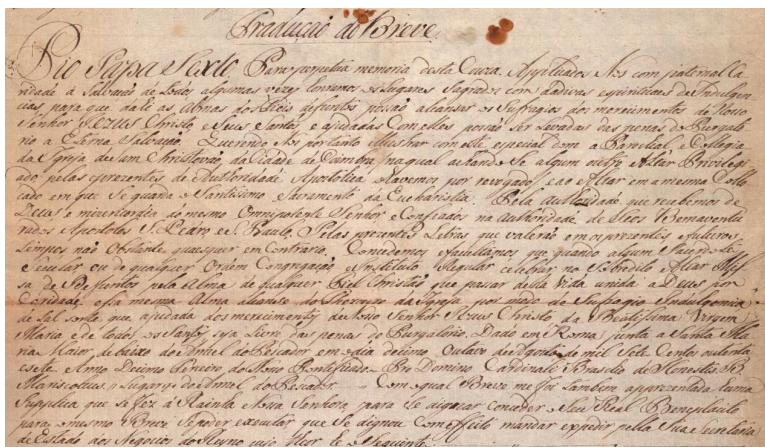 Tradução do Breve
Pio Papa Sexto Para perpetua memoria desta Couza. Applicados Nos com paternal Ca
ridade à Salvação de todos algumas vezes ornamos os Lugares Sagrados com dadivas espirituaes de Indulgen
cias para que dali as Almas dos Fieis defuntos possão alcansar os Sufragios dos merecimentos de Nosso
Senhor JEZUS Christo, e Seus Santos e ajudadas Com elles possão ser Levadas das penas do Purgato
rio a Eterna Salvação. Querendo Nós portanto illustrar com este especial dom a Parochial, e Collegia
da Igreja de Sam Christovão, da Cidade de Coimbra, na qual achando Se algum outro Altar Privilegi
ado pelas prezentes de Authoridade Apostolica havemos por revogado, e ao Altar em a mesma Collo
cado em que Se guarda o Santissimo Sacramento da Eucharistia. Pela authoridade que recebemos de
Deus e mizericordia do mesmo Omnipotente Senhor e Confiados na authoridade de Seos Bemaventu
rados Apostolos S. Pedro e S. Paulo. Pelas prezentes Letras que valerão em os prezentes e futuros
tempos não Obstante quaesquer em Contrario, Concedemos e facultamos que quando algum Sacerdote
Secular ou de qualquer Ordem Congregação e Instituto Regular celebrar no Sobredito Altar Mis
sa de Defuntos pela Alma de qualquer Fiel Christão que passar desta Vida unida a Deus por
Caridade, essa mesma Alma alcanse do Thezouro da Igreja por modo de Sufragio Indulgencia
de tal sorte que ajudada dos merecimentos de Nosso Senhor Jezus Christo da Beatissima Virgem
Maria e de todos os Santos seja Livre das penas do Purgatorio. Dado em Roma junta a Santa Ma
ria Maior, debaixo do Annel do Pescador em o dia decimo Outavo de Agosto de mil Sete Centos outenta
e sete Anno Decimo terceiro do Nosso Pontificado. Pro Domino Cardinale Braschio de Honestis R
Mariscottus Lugar do Annel do Pescador. Com o qual Breve me foi tambem aprezentada huma
Supplica que se fez à Rainha Nossa Senhora para Se dignar conceder o Seu Real Beneplacito
para o mesmo Breve Se poder executar que Se dignou Com effeito mandar expedir pella Sua Secretaria
de Estado dos Negocios do Reyno cujo theor he o Seguinte